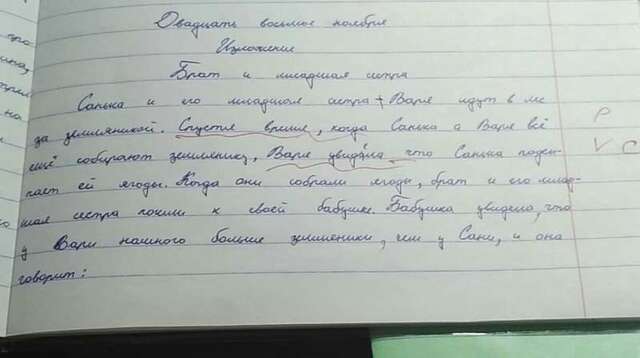 Двадцать восьмое ноября
Изложение
Брат и младшая сестра
Санька и его младшая сестра Варя идут в лес
за земляникой. Спустя время, когда Санька и Варя всё
ещё собирают землянику, Варя увидела, что Санька подсы-
пает ей ягоды. Когда они собрали ягоды, брат и его млад-
шая сестра пошли к своей бабушке. Бабушка увидела, что
у Вари намного больше земляники, чем у Сани, и она
говорит:
Р
V С